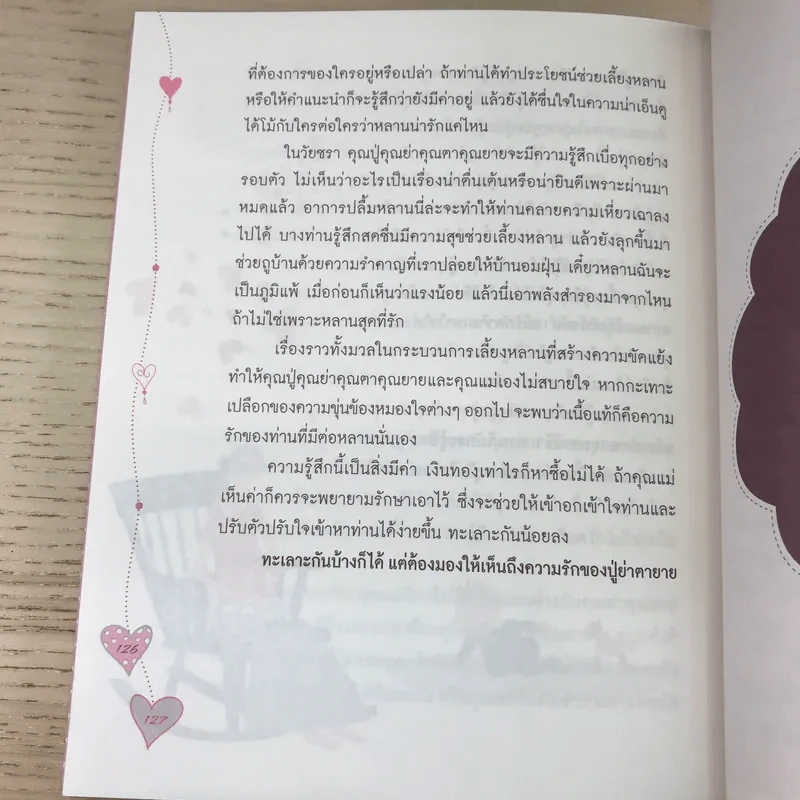 ที่ต้องการของใครอยู่หรือเปล่า ถ้าท่านได้ทำประโยชน์ช่วยเลี้ยงหลาน
หรือให้คำแนะนำก็จะรู้สึกว่ายังมีค่าอยู่ แล้วยังได้ชื่นใจในความน่าเอ็นดู
ได้โม้กับใครต่อใครว่าหลานน่ารักแค่ไหน
ในวัยชรา คุณปู่คุณย่าคุณตาคุณยายจะมีความรู้สึกเบื่อทุกอย่าง
รอบตัว ไม่เห็นว่าอะไรเป็นเรื่องน่าตื่นเต้นหรือน่ายินดีเพราะผ่านมา
หมดแล้ว อาการปลื้มหลานนี่ล่ะจะทำให้ท่านคลายความเหี่ยวเฉาลง
ไปได้ บางท่านรู้สึกสดชื่นมีความสุขช่วยเลี้ยงหลาน แล้วยังลุกขึ้นมา
ช่วยถูบ้านด้วยความรำคาญที่เราปล่อยให้บ้านอมฝุ่น เดี๋ยวหลานฉันจะ
เป็นภูมิแพ้ เมื่อก่อนก็เห็นว่าแรงน้อย แล้วนี่เอาพลังสำรองมาจากไหน
ถ้าไม่ใช่เพราะหลานสุดที่รัก
เรื่องราวทั้งมวลในกระบวนการเลี้ยงหลานที่สร้างความขัดแย้ง
ทำให้คุณปู่คุณย่าคุณตาคุณยายและคุณแม่เองไม่สบายใจ หากกะเทาะ
เปลือกของความขุ่นข้องหมองใจต่างๆ ออกไป จะพบว่าเนื้อแท้ก็คือความ
รักของท่านที่มีต่อหลานนั่นเอง
ความรู้สึกนี้เป็นสิ่งมีค่า เงินทองเท่าไรก็หาซื้อไม่ได้ ถ้าคุณแม่
เห็นค่าก็ควรจะพยายามรักษาเอาไว้ ซึ่งจะช่วยให้เข้าอกเข้าใจท่านและ
ปรับตัวปรับใจเข้าหาท่านได้ง่ายขึ้น ทะเลาะกันน้อยลง
ทะเลาะกันบ้างก็ได้ แต่ต้องมองให้เห็นถึงความรักของปู่ย่าตายาย
126
127